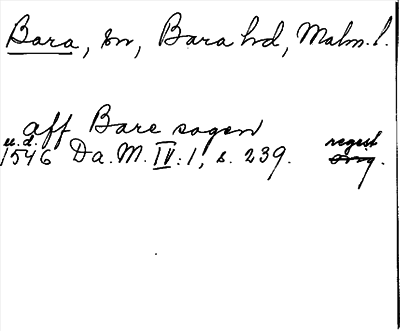 Bara, sn, Bara hd, Malm. l.
aff Bare sogen
u.d. regist
1546 Da. M. IV: 1, s. 239. orig.